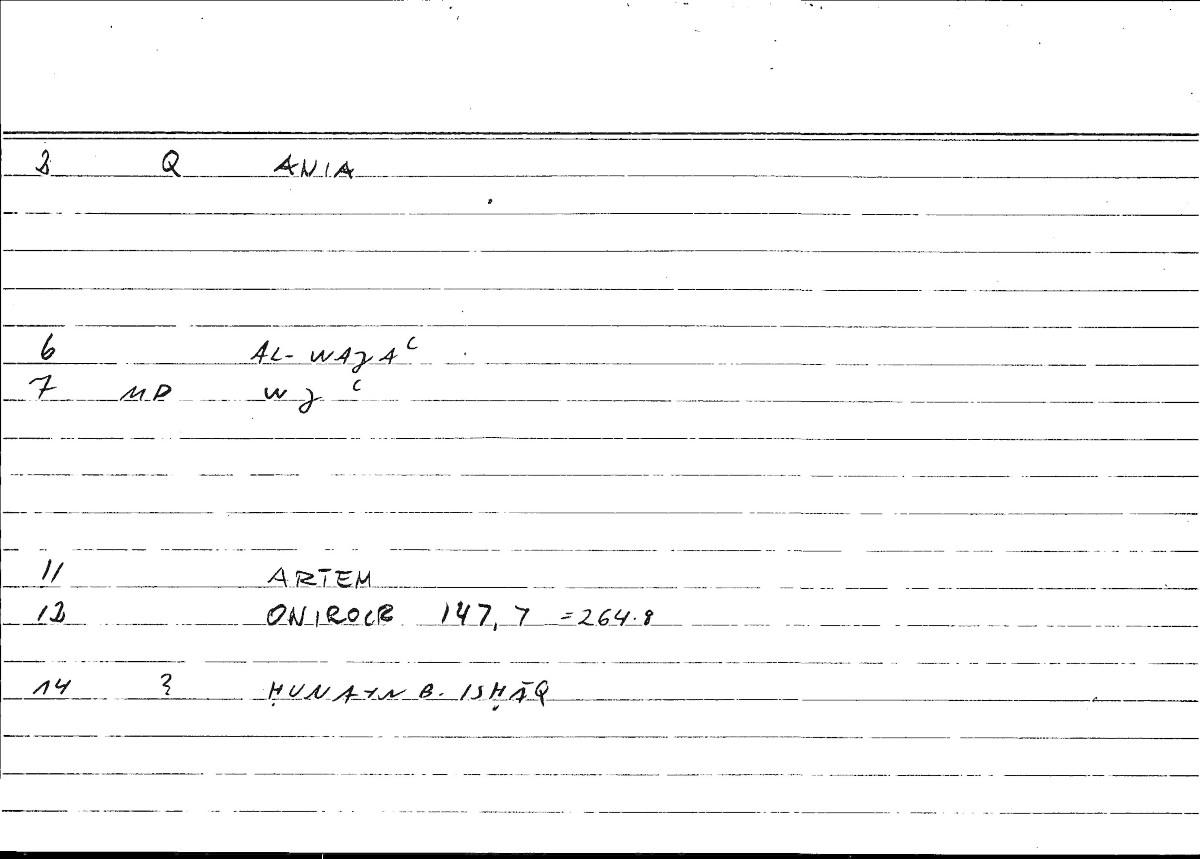 2 Q ANIA
6 AL-WAJAʿ
7 MD WJ ʿ
11 ARTEM
12 ONIROCR 147,7 =264.8
14 3 ḤUNAYN B. ISḤĀQ